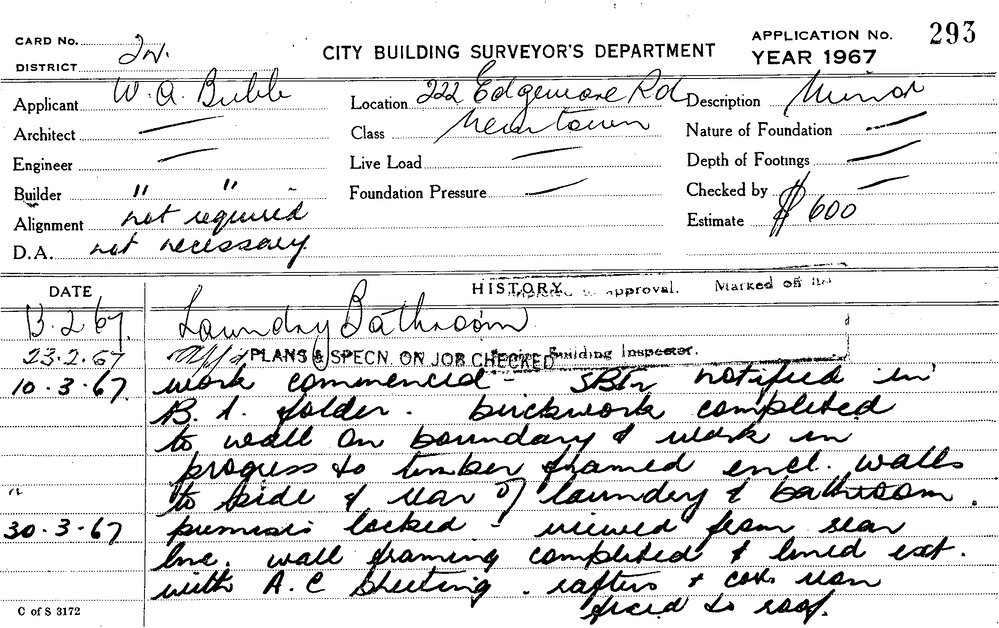 CARD No.
DISTRICT
CITY BUILDING SURVEYOR'S DEPARTMENT
APPLICATION No. 293
YEAR 1967
Applicant W. A. Bubb Location 222 Edgeware Rd Description Minor
Architect — Class Newtown Nature of Foundation —
Engineer — Live Load — Depth of Footings —
Builder " " Foundation Pressure — Checked by —
Alignment not required Estimate $ 600
D.A. not necessary
DATE HISTORY approval. Marked off
13.2.67 Laundry Bathroom
23.2.67 PLANS & SPECN. ON JOB CHECKED Building Inspector.
10.3.67 work commenced - notified in
B. I. folder. brickwork completed
to wall on boundary & work in
progress to timber framed encl. walls
" to side & rear of laundry & bathroom.
30.3.67 premises locked - viewed from rear
lne. wall framing completed & lined ext.
with A.C sheeting. rafters & iron
fixed to roof.
C of S 3172